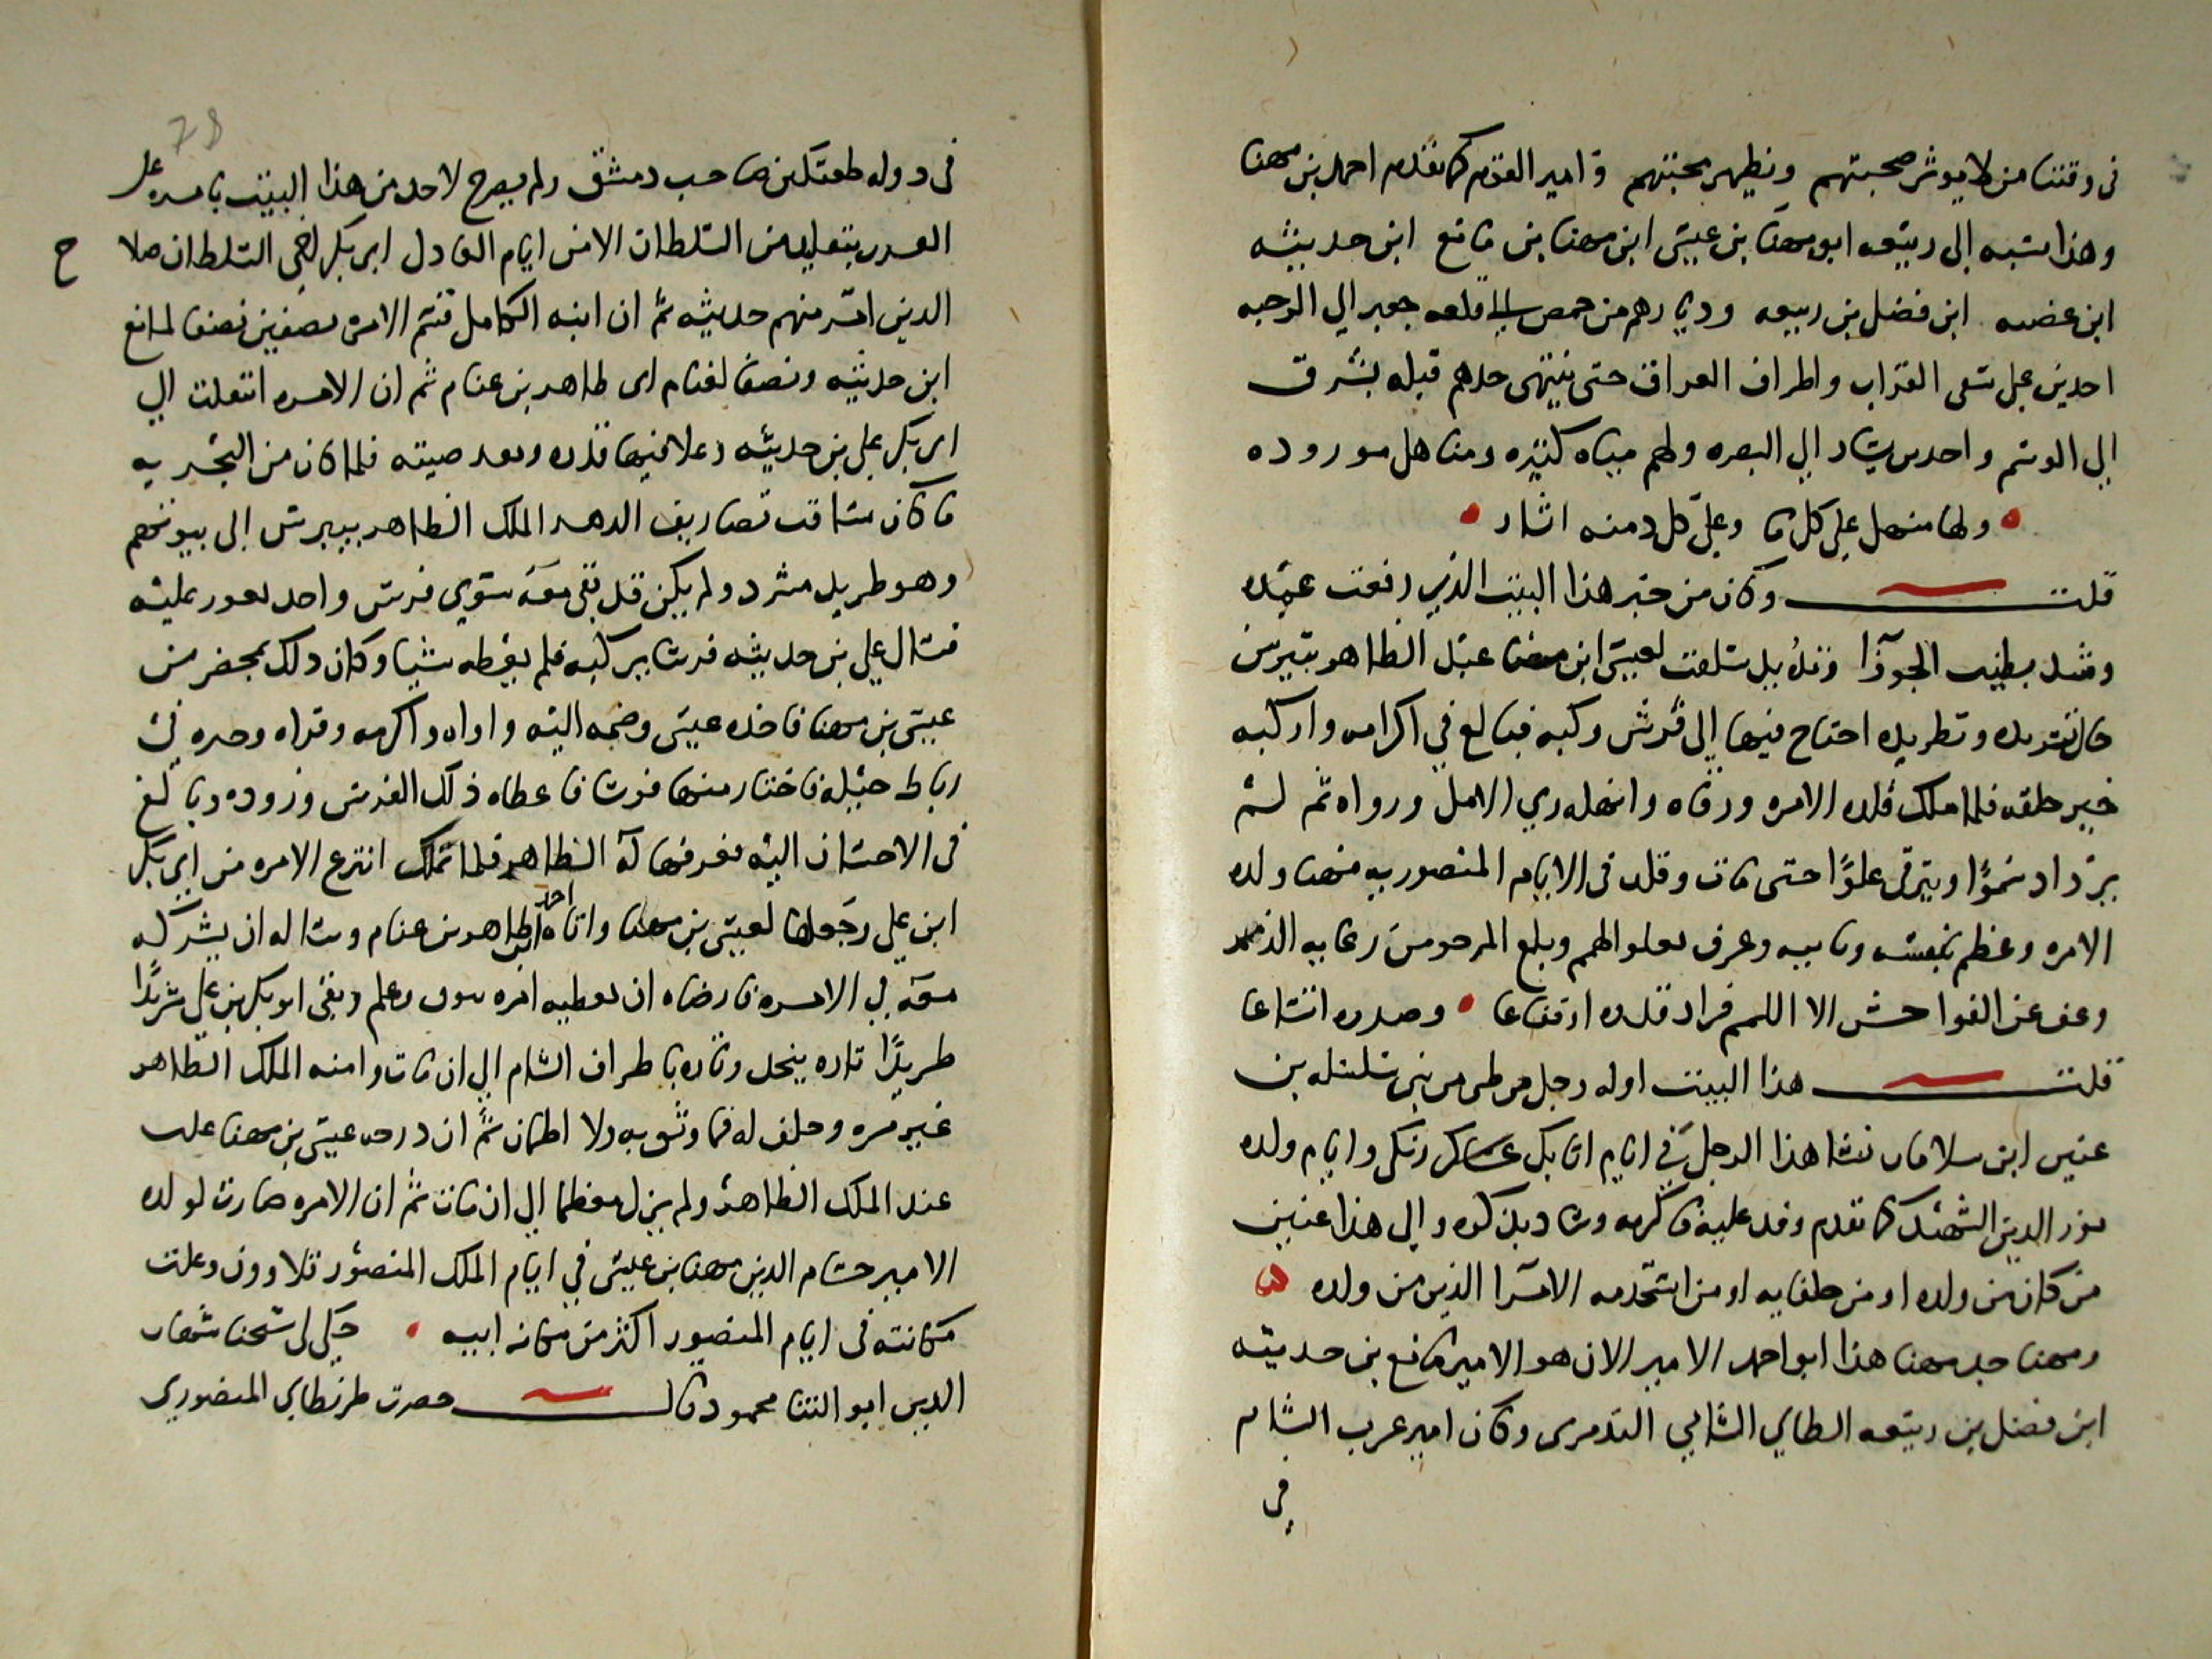 في وقتنا من لا يوثر صحبتهم ويظهر محبتهم وامير القوم كما تقدم احمد بن مهنا
وهذا نسبه الى ربيعه ابو مهنا بن عيسى ابن مهنا بن مانع ابن حديثه
ابن عضبه ابن فضل بن ربيعه وديارهم من حمص الى قلعه جعبر الي الرحبه
اخدين على شقى الفرات واطراف العراق حتى ينتهى حدهم قبله بشرق
الي الوشم واخدين يسار الي البصره ولهم مياه كثيره ومناهل موروده
ولها منهل على كل ما وعلى كل دمنه اثار
قلت وكان من خبر هذا البيت الذي رفعت عمده
ومد بطنب الجوزا وتده يد سلفت لعيسى ابن مهنا عند الظاهر بيبرس
حال تشريده وتطريده احتاج فيها الى فرس ركبه فبالغ في اكرامه واركبه
خير خلقه فلما ملك قلده الامره ورقاه وانهله ري الامل ورواه ثم لم
يزداد نموًا ويترقى علوًا حتى مات وقلد في الايام المنصوريه مهنا ولده
الامره وعظم بنفسه وابيه وعرف بعلو الهمم وبلغ المرجو من رعايه الذمم
وعف عن الفواحش الا اللمم فزاد قدره ارتفاعا وصدره اتساعا
قلت هذا البيت اوله رجل من طي من بني سلسله بن
عنين ابن سلامان نشا هذا الرجل في ايام اتابك زنكي وايام ولده
نور الدين الشهيد كما تقدم وفد عليه فاكرمه وشاد بذكره والى هذا عنين
من كان من ولده او من حلفايه او من استخدمه الامرا الذين من ولده
ومهنا جد مهنا هذا ابو احمد الامير الان هو الامير مانع بن حديثه
ابن فضل بن ربيعه الطاي الشامي التدمرى وكان امير عرب الشام
في
78
في دوله طغتكين صاحب دمشق ولم يصرح لاحد من هذا البيت بامره على
العرب بتقليد من السلطان الا من ايام العادل ابى بكر اخي السلطان صلاح
الدين امر منهم حديثه ثم ان ابنه الكامل قسم الامره نصفين نصفا لمانع
ابن حديثه ونصفا لغنام ابى طاهر بن غنام ثم ان الامره انتقلت الي
ابى بكر علي بن حديثه وعلا فيها قدره وبعد صيته فلما كان من البحريه
ما كان ساقت تصاريف الدهر الملك الظاهر بيبرس الى بيوتهم
وهو طريد مشرد ولم يكن قد بقي معه سوي فرس واحد يعور عليه
فسال علي بن حديثه فرسا يركبه فلم يعطه شيا وكان ذلك بمحضر من
عيسى بن مهنا فاخذه عيسى وضمه اليه واواه واكرمه وقراه وخيره في
رباط خيله فاختار منها فرسا فاعطاه ذلك الفرس وزوده وبالغ
في الاحسان اليه فعرفها له الظاهر فلما تملك انتزع الامره من ابي بكر
ابن علي وجعلها لعيسى بن مهنا واتاه احمد ابن طاهر بن غنام وساله ان يشركه
معه في الامره فارضاه ان يعطيه امره ببوق وعلم وبقى ابو بكر بن علي شريدًا
طريدًا تاره ينجد وتاره باطراف الشام الي ان مات وامنه الملك الظاهر
غير مره وحلف له فما وثق به ولا اطمان ثم ان درجه عيسى بن مهنا علت
عند الملك الظاهر ولم يزل معظما الي ان مات ثم ان الامره صارت لولده
الامير حسام الدين مهنا بن عيسى في ايام الملك المنصور قلاوون وعلت
مكانته في ايام المنصور اكثر من مكانه ابيه حكي لي شيخنا شهاب
الدين ابو الثنا محمود قال حضرت طرنطاي المنصوري